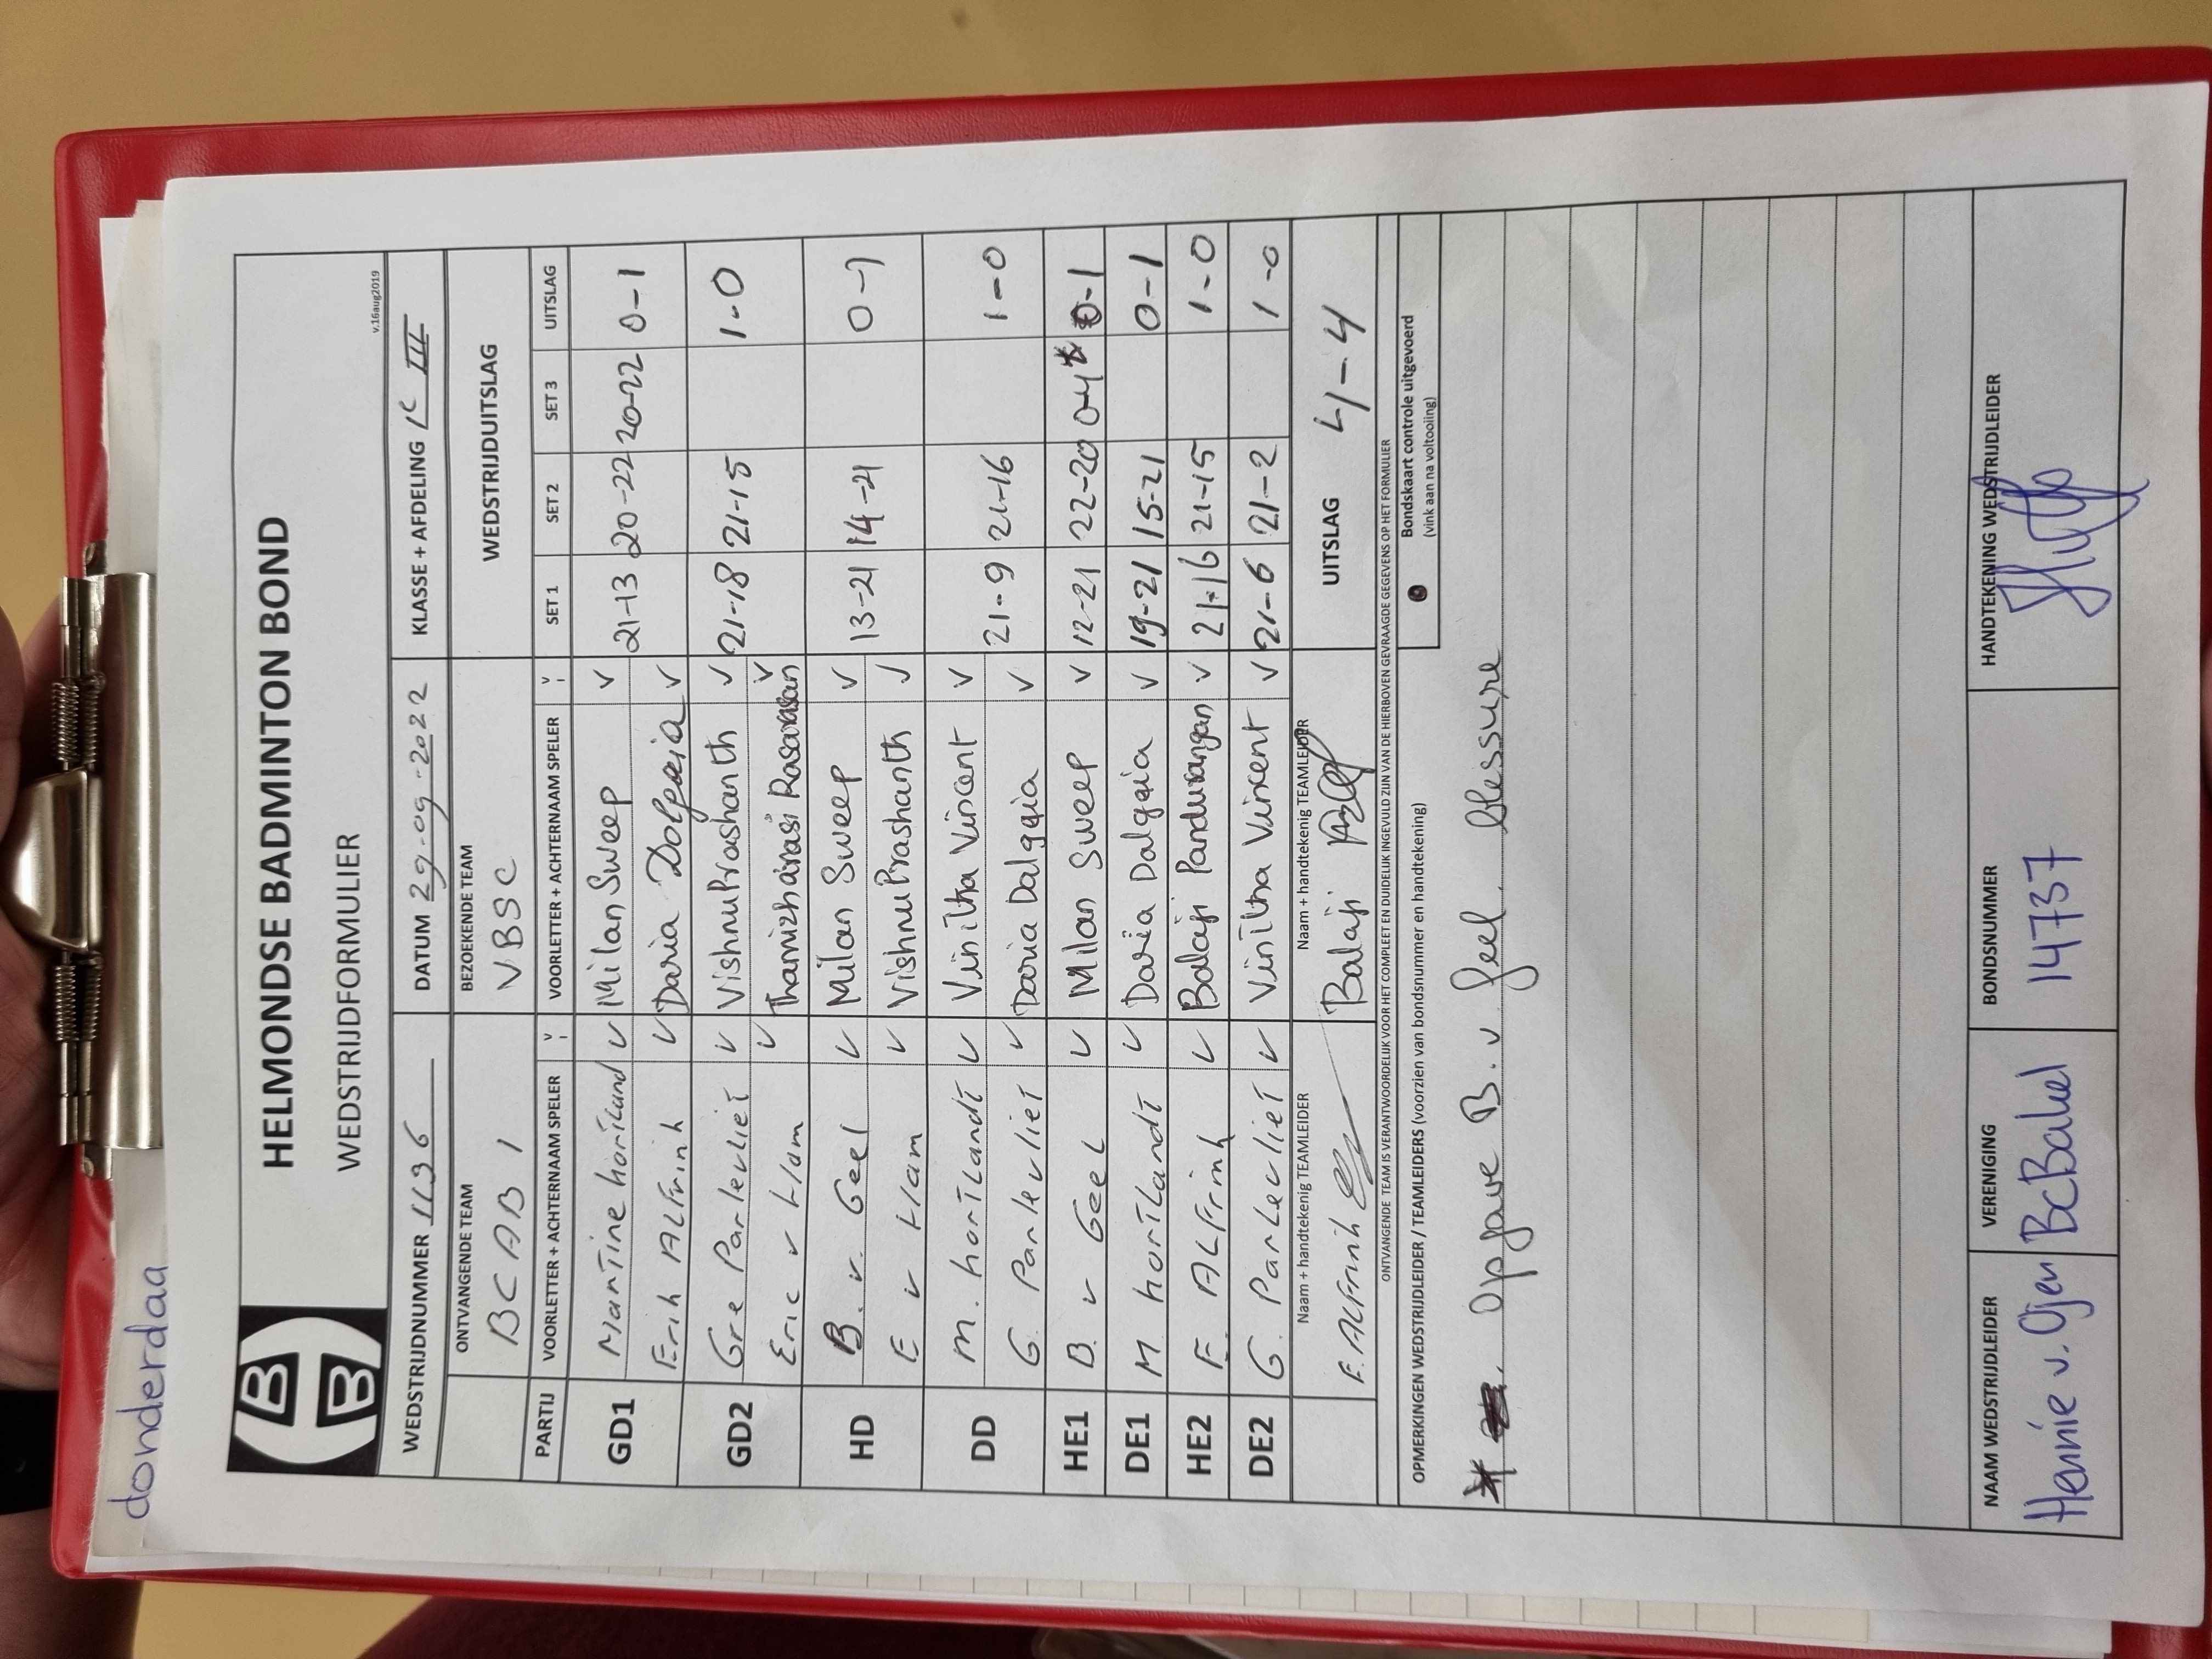 donderdaa
HELMONDSE BADMINTON BOND
WEDSTRIJDFORMULIER
v.16aug2019
WEDSTRIJDNUMMER 1196 DATUM 29-09-2022 KLASSE + AFDELING 1e III
ONTVANGENDE TEAM BEZOEKENDE TEAM WEDSTRIJDUITSLAG
BCAB 1 VBSC
PARTIJ VOORLETTER + ACHTERNAAM SPELER V VOORLETTER + ACHTERNAAM SPELER V SET 1 SET 2 SET 3 UITSLAG
GD1 Martine hortland v Milan Sweep v 21-13 20-22 20-22 0-1
Erik ALFrink v Daria v
GD2 Gre Parlevliet v Vishnu Prashanth v 21-18 21-15 1-0
Eric v Ham v Thamizharasi v
HD B. v. Geel v Milan Sweep v 13-21 14-21 0-1
E v Ham v Vishnu Prashanth v
DD M. hortlandt v Vinitha Vincent v 21-9 21-16 1-0
G. Parlevliet v Daria Dalgaia v
HE1 B. v Geel v Milan Sweep v 12-21 22-20 0-4* 0-1
DE1 M hortlandt v Daria Dalgaia v 19-21 15-21 0-1
HE2 E. ALFrink v Balaji Pandurangan v 21-16 21-15 1-0
DE2 G. Parlevliet v Vinitha Vincent v 21-6 21-2 1-0
Naam + handtekenig TEAMLEIDER Naam + handtekenig TEAMLEIDER UITSLAG 4-4
E. ALFrink Balaji
ONTVANGENDE TEAM IS VERANTWOORDELIJK VOOR HET COMPLEET EN DUIDELIJK INGEVULD ZIJN VAN DE HIERBOVEN GEVRAAGDE GEGEVENS OP HET FORMULIER
OPMERKINGEN WEDSTRIJDLEIDER / TEAMLEIDERS (voorzien van bondsnummer en handtekening) Bondskaart controle uitgevoerd
(vink aan na voltooiing)
* Opgave B. v Geel. blessure
NAAM WEDSTRIJDLEIDER VERENIGING BONDSNUMMER HANDTEKENING WEDSTRIJDLEIDER
Hennie v. Ojen BcBakel 14737